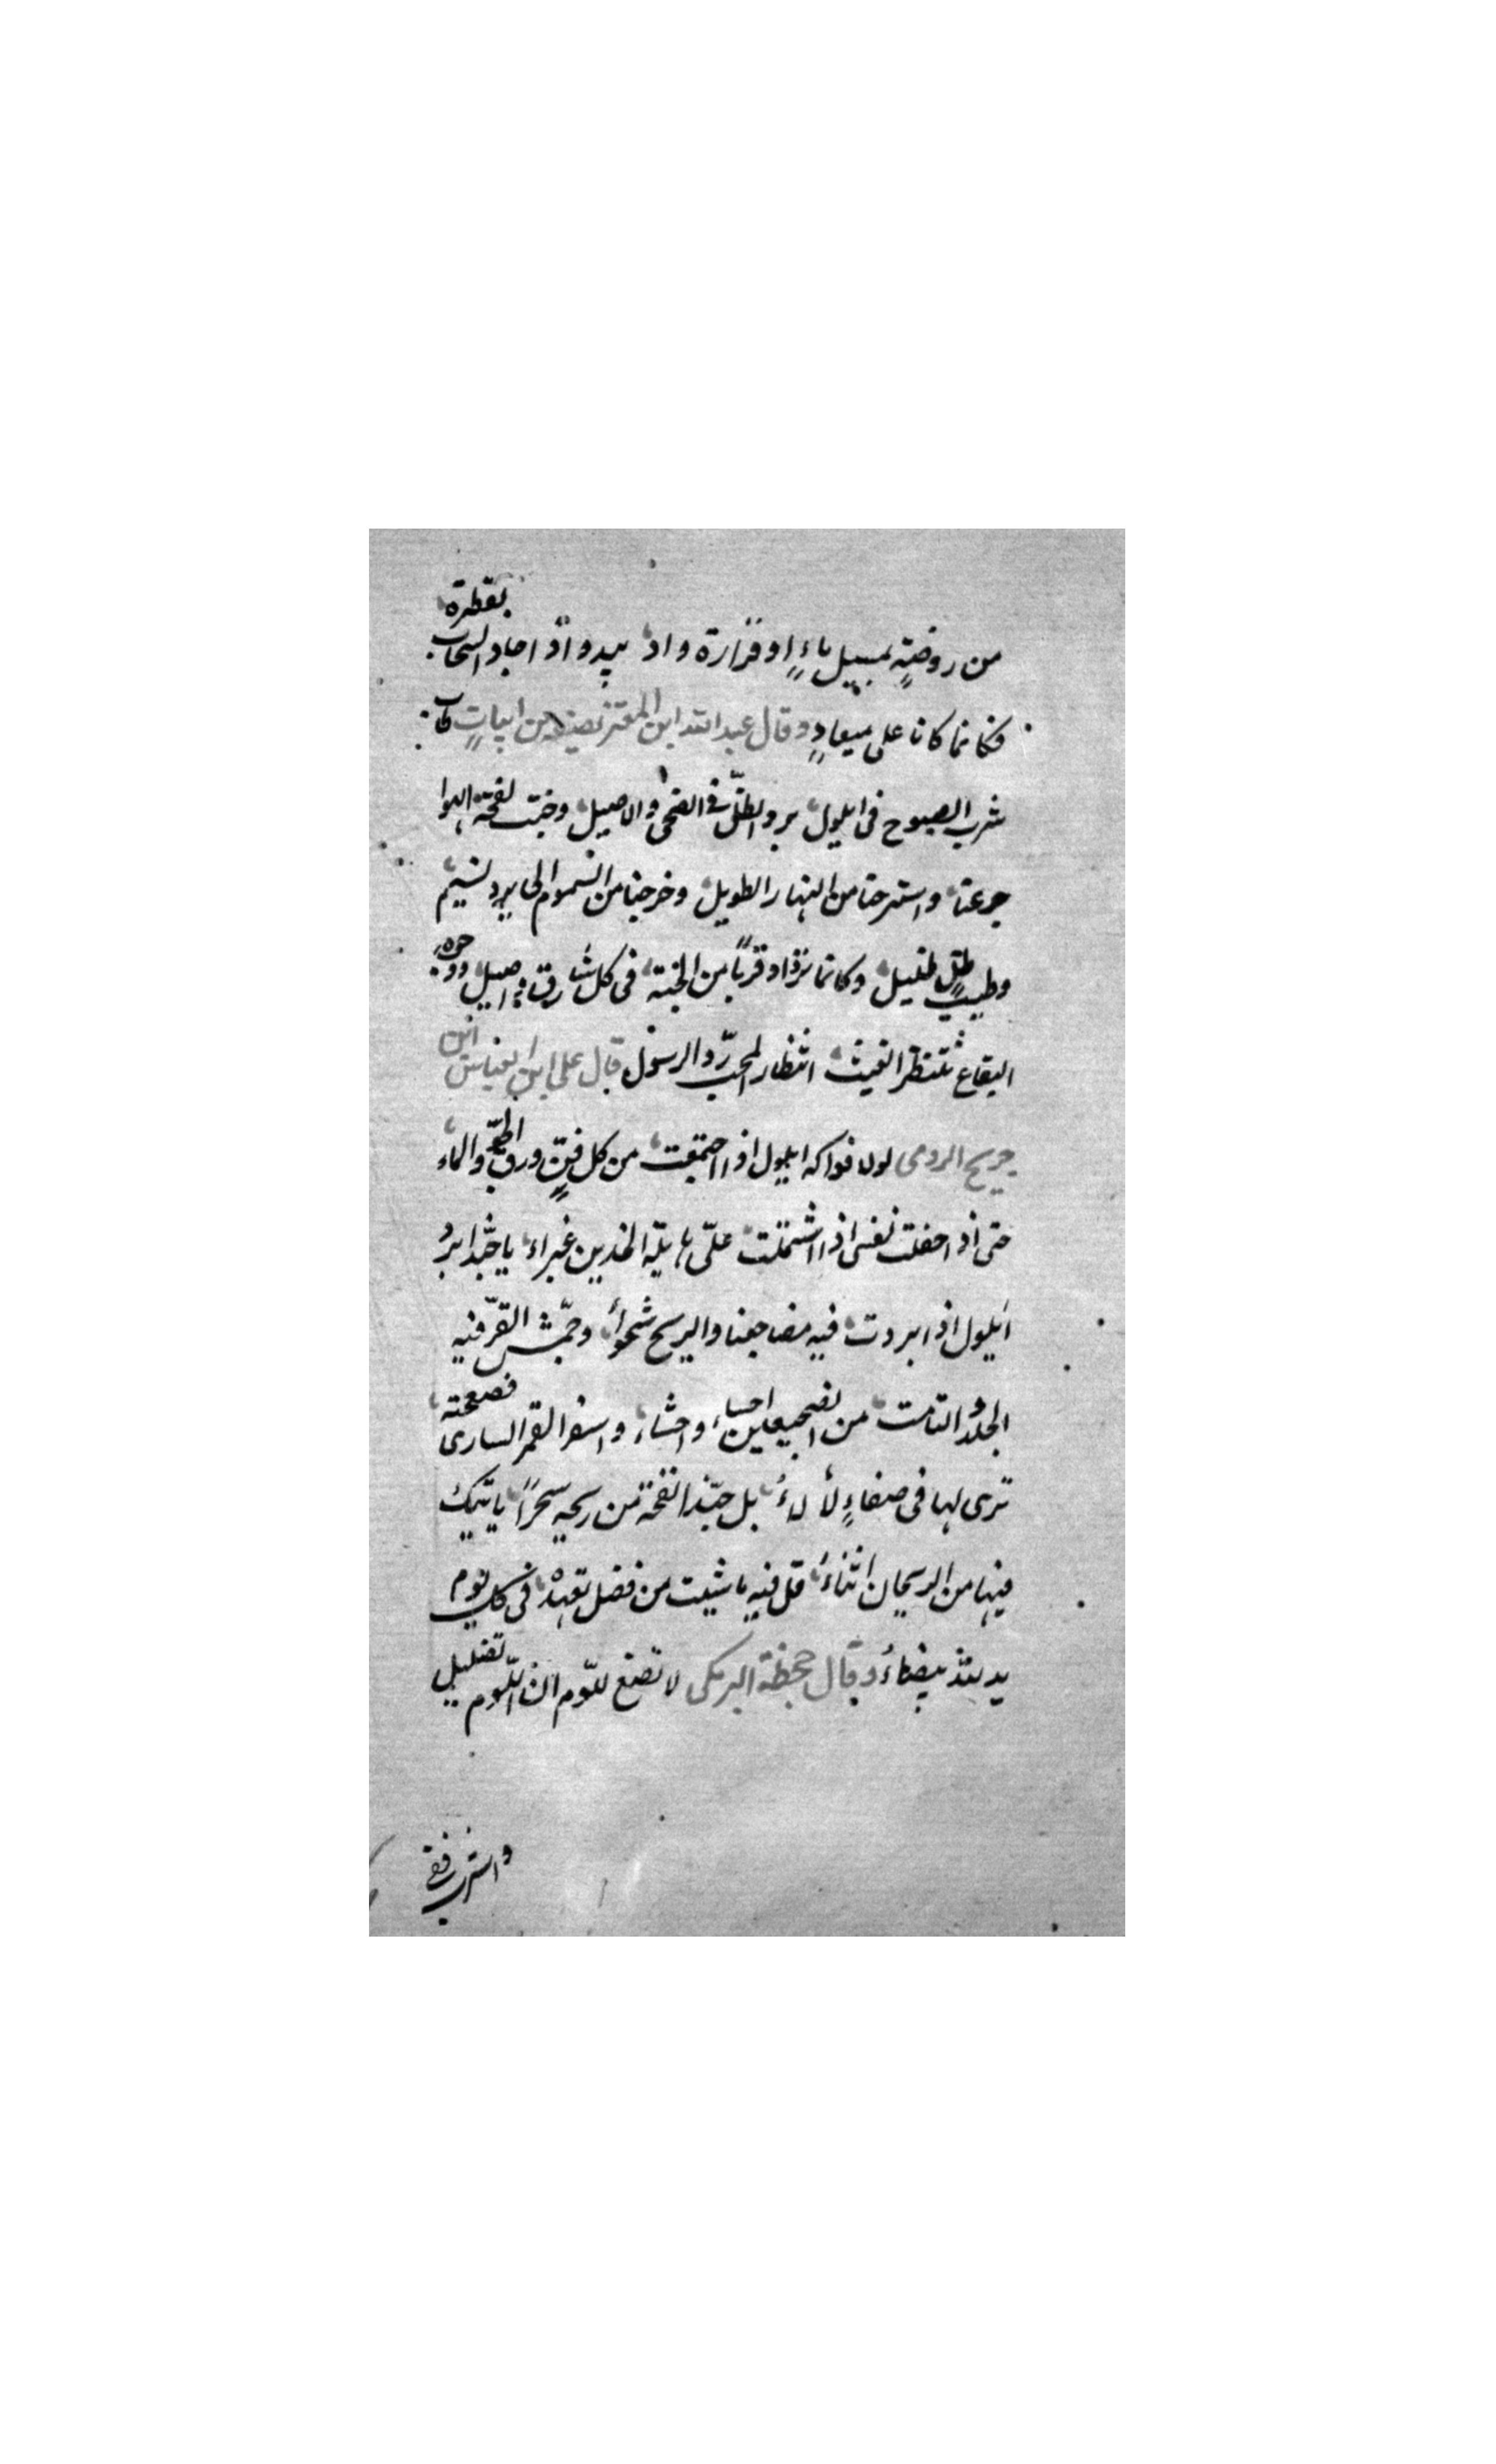 من روضةٍ بمسيل ماءٍ او قرارة واد، يبدو اذا جاد السحاب بقطره
فكانما كانا على ميعادٍ وقال عبد الله ابن المعتز يصفه من ابياتٍ طاب
شرب الصبوح فى ايلول، برد الظلّ فى الضحى والاصيل، وخبت لفحة الهوا
جرعنا، واسترحنا من النهار الطويل، وخرجنا من السموم الى برد نسيم
وطيب ظلٍ ظليل، وكانما نزداد قرباً من الجنة، فى كل شارق واصيل، ووجوه
البقاع تنتظر الغيث، انتظار المحب ردّ الرسول، قال على ابن العباس ابن
جريج الرومى لولا فواكه ايلول اذا اجتمعت، من كل فنٍّ ورقّ الجوّ والماء،
حتى اذا حفلت نفسى اذا اشتملت، علىّ هايلة الخدين غبراء، يا حبّذا ابرُ
ايلول اذا بردت، فيه مضاجعنا والريح شجواً، وجمّش القرّ فيه
الجلدُ التامت، من الضجيعين احساء، واحشاء، واسفر القمر السارى فصفحته،
ترى لها فى صفاءٍ لألاءُ، بل حبّذا نفحة من ريحه سحراً، ياتيك
فيها من الريحان اثناءُ، قل فيه ما شيت من فضل تعهدهُ، فى كل يوم
يد لله بيضاءُ، وقال جحظة البرمكى لا تصغ للّوم ان اللّوم تضليل
واشرب ففى